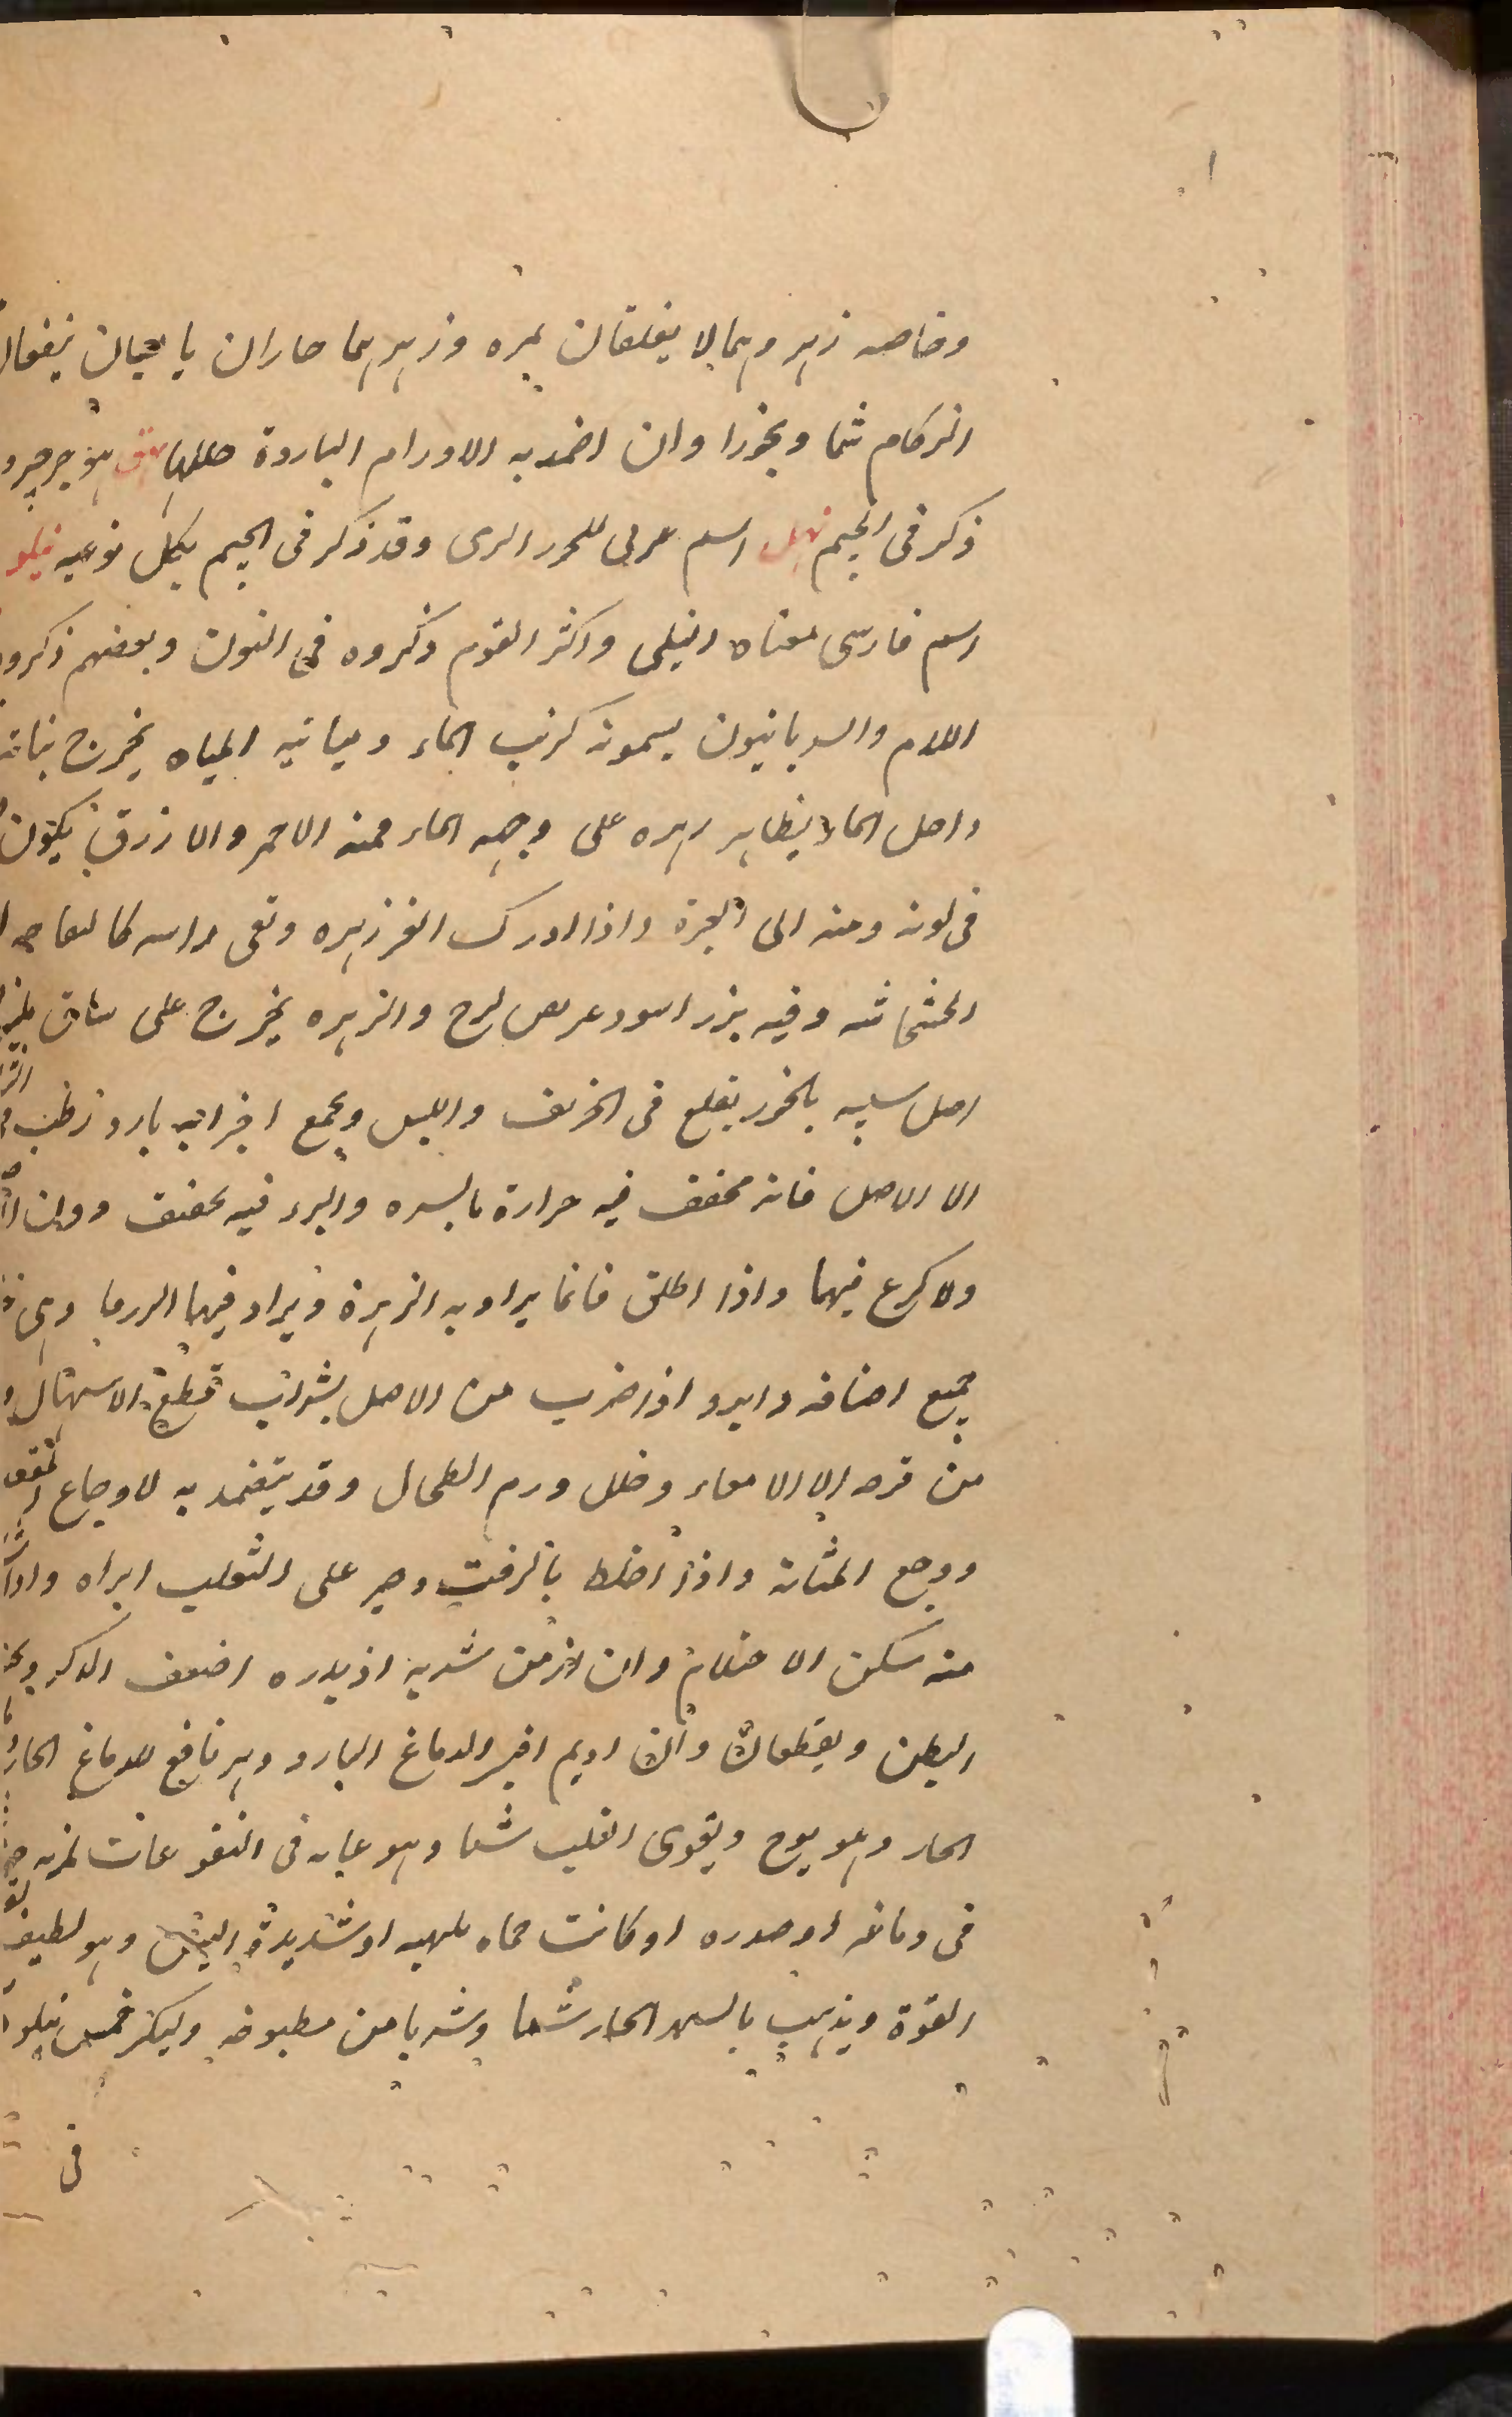 وخاصه زهر وهما لا يغلقان ثمره وزهرهما حاران يابسان ينفعان
الزكام شما وبخورا وان اضمد به الاورام الباردة حللها نهق هو جرجير و
ذكر فى الجيم نهل اسم عربى للحرر البرى وقد ذكر فى الجيم بكل نوعيه نيلو
اسم فارسى معناه النيلى واكثر القوم ذكروه فى النون وبعضهم ذكروه
اللام والسريانيون يسمونه كرنب الماء وميانيه المياه يخرج نباته
داخل الماء يظاهر زهره على وجه الماء فمنه الاحمر والازرق يكون
فى لونه ومنه الى الغبرة واذا ادرك انفرزهره وبقى راسه كالتفاحه
الخشخاشه وفيه بزر اسود عريض لزج والزهره يخرج على ساق يلز
اصل سبيه بالخزر يقلع فى الخريف والليس ويجمع اجزائه بارد رطب
الا الاصل فانه مجفف فيه حرارة يابسره والبرد فيه محقق دون
ولا كرع فيها واذا اطلق فانما يراد به الزهرة ويراد فيها الررما وهى
جميع اصنافه وابرد اذا ضرب من الاصل بشراب قطع الاسهال و
من قرحه الا الامعاء وحلل ورم الطحال وقد يتضمد به لاوجاع المعده
ووجع المثانة واذا اخلط بالزفت وصير على الثعلب ابراه واذا
منه سكن الاحتلام وان ازمن شربه اذ بدره اضعف الذكر
البطن ويقطعان وان اديم اضر الدماغ البارد وهو نافع للدماغ الحار
الحار وهو ينوم ويقوى القلب شما وهو غايه فى النقوعات لمن به
فى دماغه او صدره او كانت حماه ملهبه او شديدة اليبس وهو لطيف
القوة ويذهب بالسهر الحار شما وشربا من مطبوخه وليكثر فمس نيلو
فى